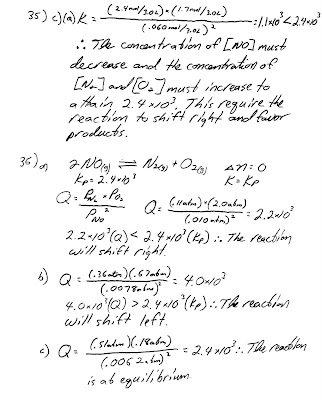 35) c)(a) K = (2.4mol/3.0L)·(1.7mol/3.0L) / (.060mol/3.0L)² = 1.1x10³ < 2.4x10³
∴ The concentration of [NO] must
decrease and the concentration of
[N₂] and [O₂] must increase to
attain 2.4x10³. This require the
reaction to shift right and favor
products.
36) a) 2NO(g) ⇌ N₂(g) + O₂(g) Δn = 0
Kp = 2.4x10³ K = Kp
Q = P_N₂ x P_O₂ / P_NO² Q = (.11atm)·(2.0atm) / (.010atm)² = 2.2x10³
2.2x10³ (Q) < 2.4x10³ (Kp) ∴ The reaction
will shift right.
b) Q = (.36atm)(.67atm) / (.0078atm)² = 4.0x10³
4.0x10³ (Q) > 2.4x10³ (Kp) ∴ The reaction
will shift left.
c) Q = (.51atm)(.18atm) / (.0062atm)² = 2.4x10³ ∴ The reaction
is at equilibrium